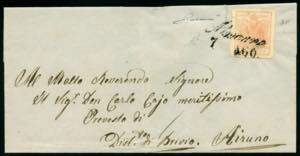 7
AGO
Al Molto Reverendo Signore
Il Sig.r Don Carlo Cajo meritissimo
Prevosto di
Dist.to di Brivio. Airuno